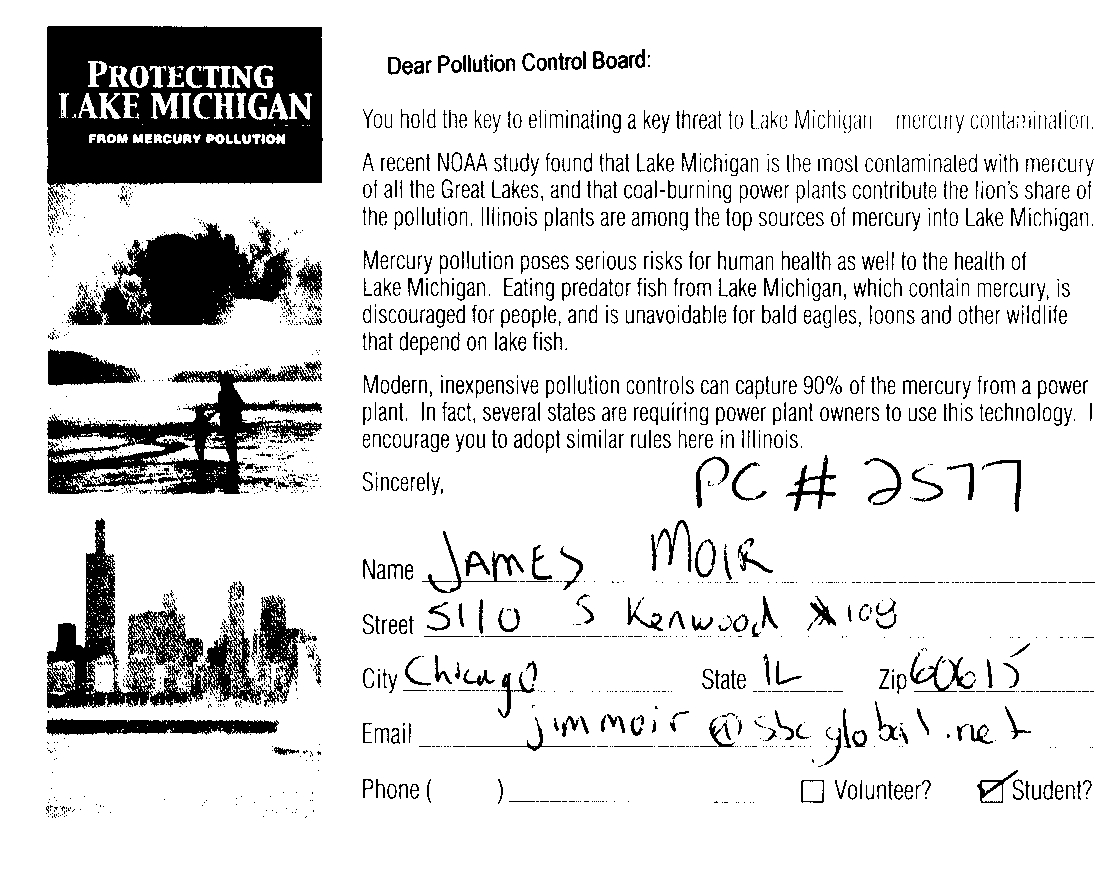 PROTECTING
LAKE MICHIGAN
FROM MERCURY POLLUTION
Dear Pollution Control Board:
You hold the key to eliminating a key threat to Lake Michigan mercury contamination.
A recent NOAA study found that Lake Michigan is the most contaminated with mercury
of all the Great Lakes, and that coal-burning power plants contribute the lion's share of
the pollution. Illinois plants are among the top sources of mercury into Lake Michigan.
Mercury pollution poses serious risks for human health as well to the health of
Lake Michigan. Eating predator fish from Lake Michigan, which contain mercury, is
discouraged for people, and is unavoidable for bald eagles, loons and other wildlife
that depend on lake fish.
Modern, inexpensive pollution controls can capture 90% of the mercury from a power
plant. In fact, several states are requiring power plant owners to use this technology. I
encourage you to adopt similar rules here in Illinois.
Sincerely,
PC # 2577
Name JAMES MOIR
Street 5110 S Kenwood #108
City Chicago State IL Zip 60615
Email jimmoir@sbcglobal.net
Phone ( ) Volunteer? Student?